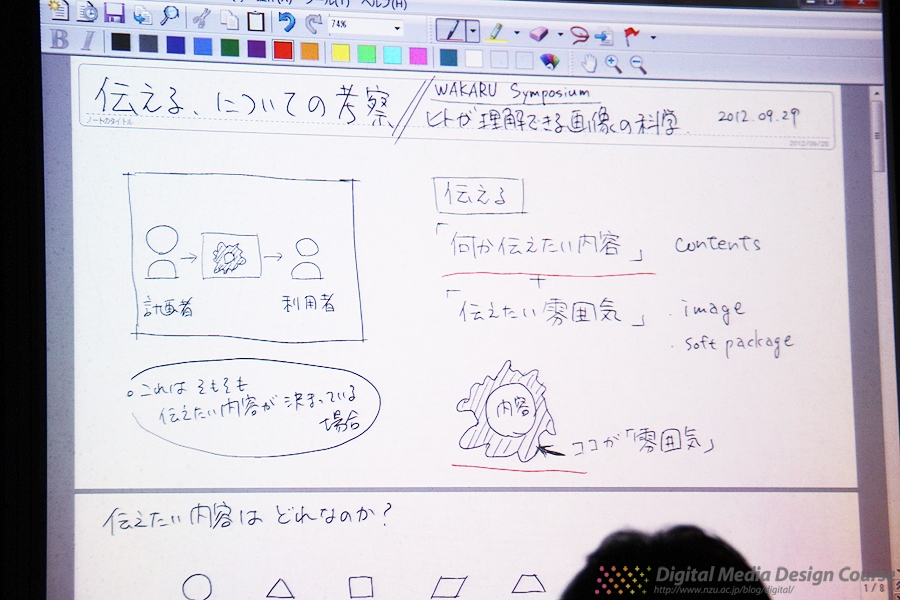 ヘルプ(H)
B I
74%
伝える、についての考察
WAKARU Symposium
ヒトが理解できる画像の科学
2012.09.29
ノートのタイトル
2012/09/28
計画者
利用者
伝える
「何か伝えたい内容」 contents
+
「伝えたい雰囲気」 . image
. soft package
これは そもそも
伝えたい内容が決まっている
場合
内容
ココが「雰囲気」
伝えたい内容は どれなのか?
1/8
Digital Media Design Course
http://www.nzu.ac.jp/blog/digital/